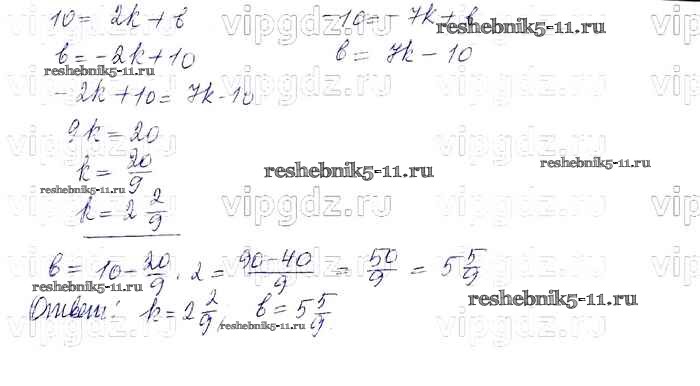 10 = 2k + b    -10 = -7k + b
b = -2k + 10    b = 7k - 10
reshebnik5-11.ru
-2k + 10 = 7k - 10
9k = 20
k = 20/9
reshebnik5-11.ru
reshebnik5-11.ru
reshebnik5-11.ru
k = 2 2/9
b = 10 - 20/9 · 2 = (90-40)/9 = 50/9 = 5 5/9
reshebnik5-11.ru
Ответ: k = 2 2/9, b = 5 5/9
reshebnik5-11.ru
vipgdz.ru vipgdz.ru vipgdz.ru
vipgdz.ru vipgdz.ru vipgdz.ru
vipgdz.ru vipgdz.ru vipgdz.ru
vipgdz.ru vipgdz.ru vipgdz.ru